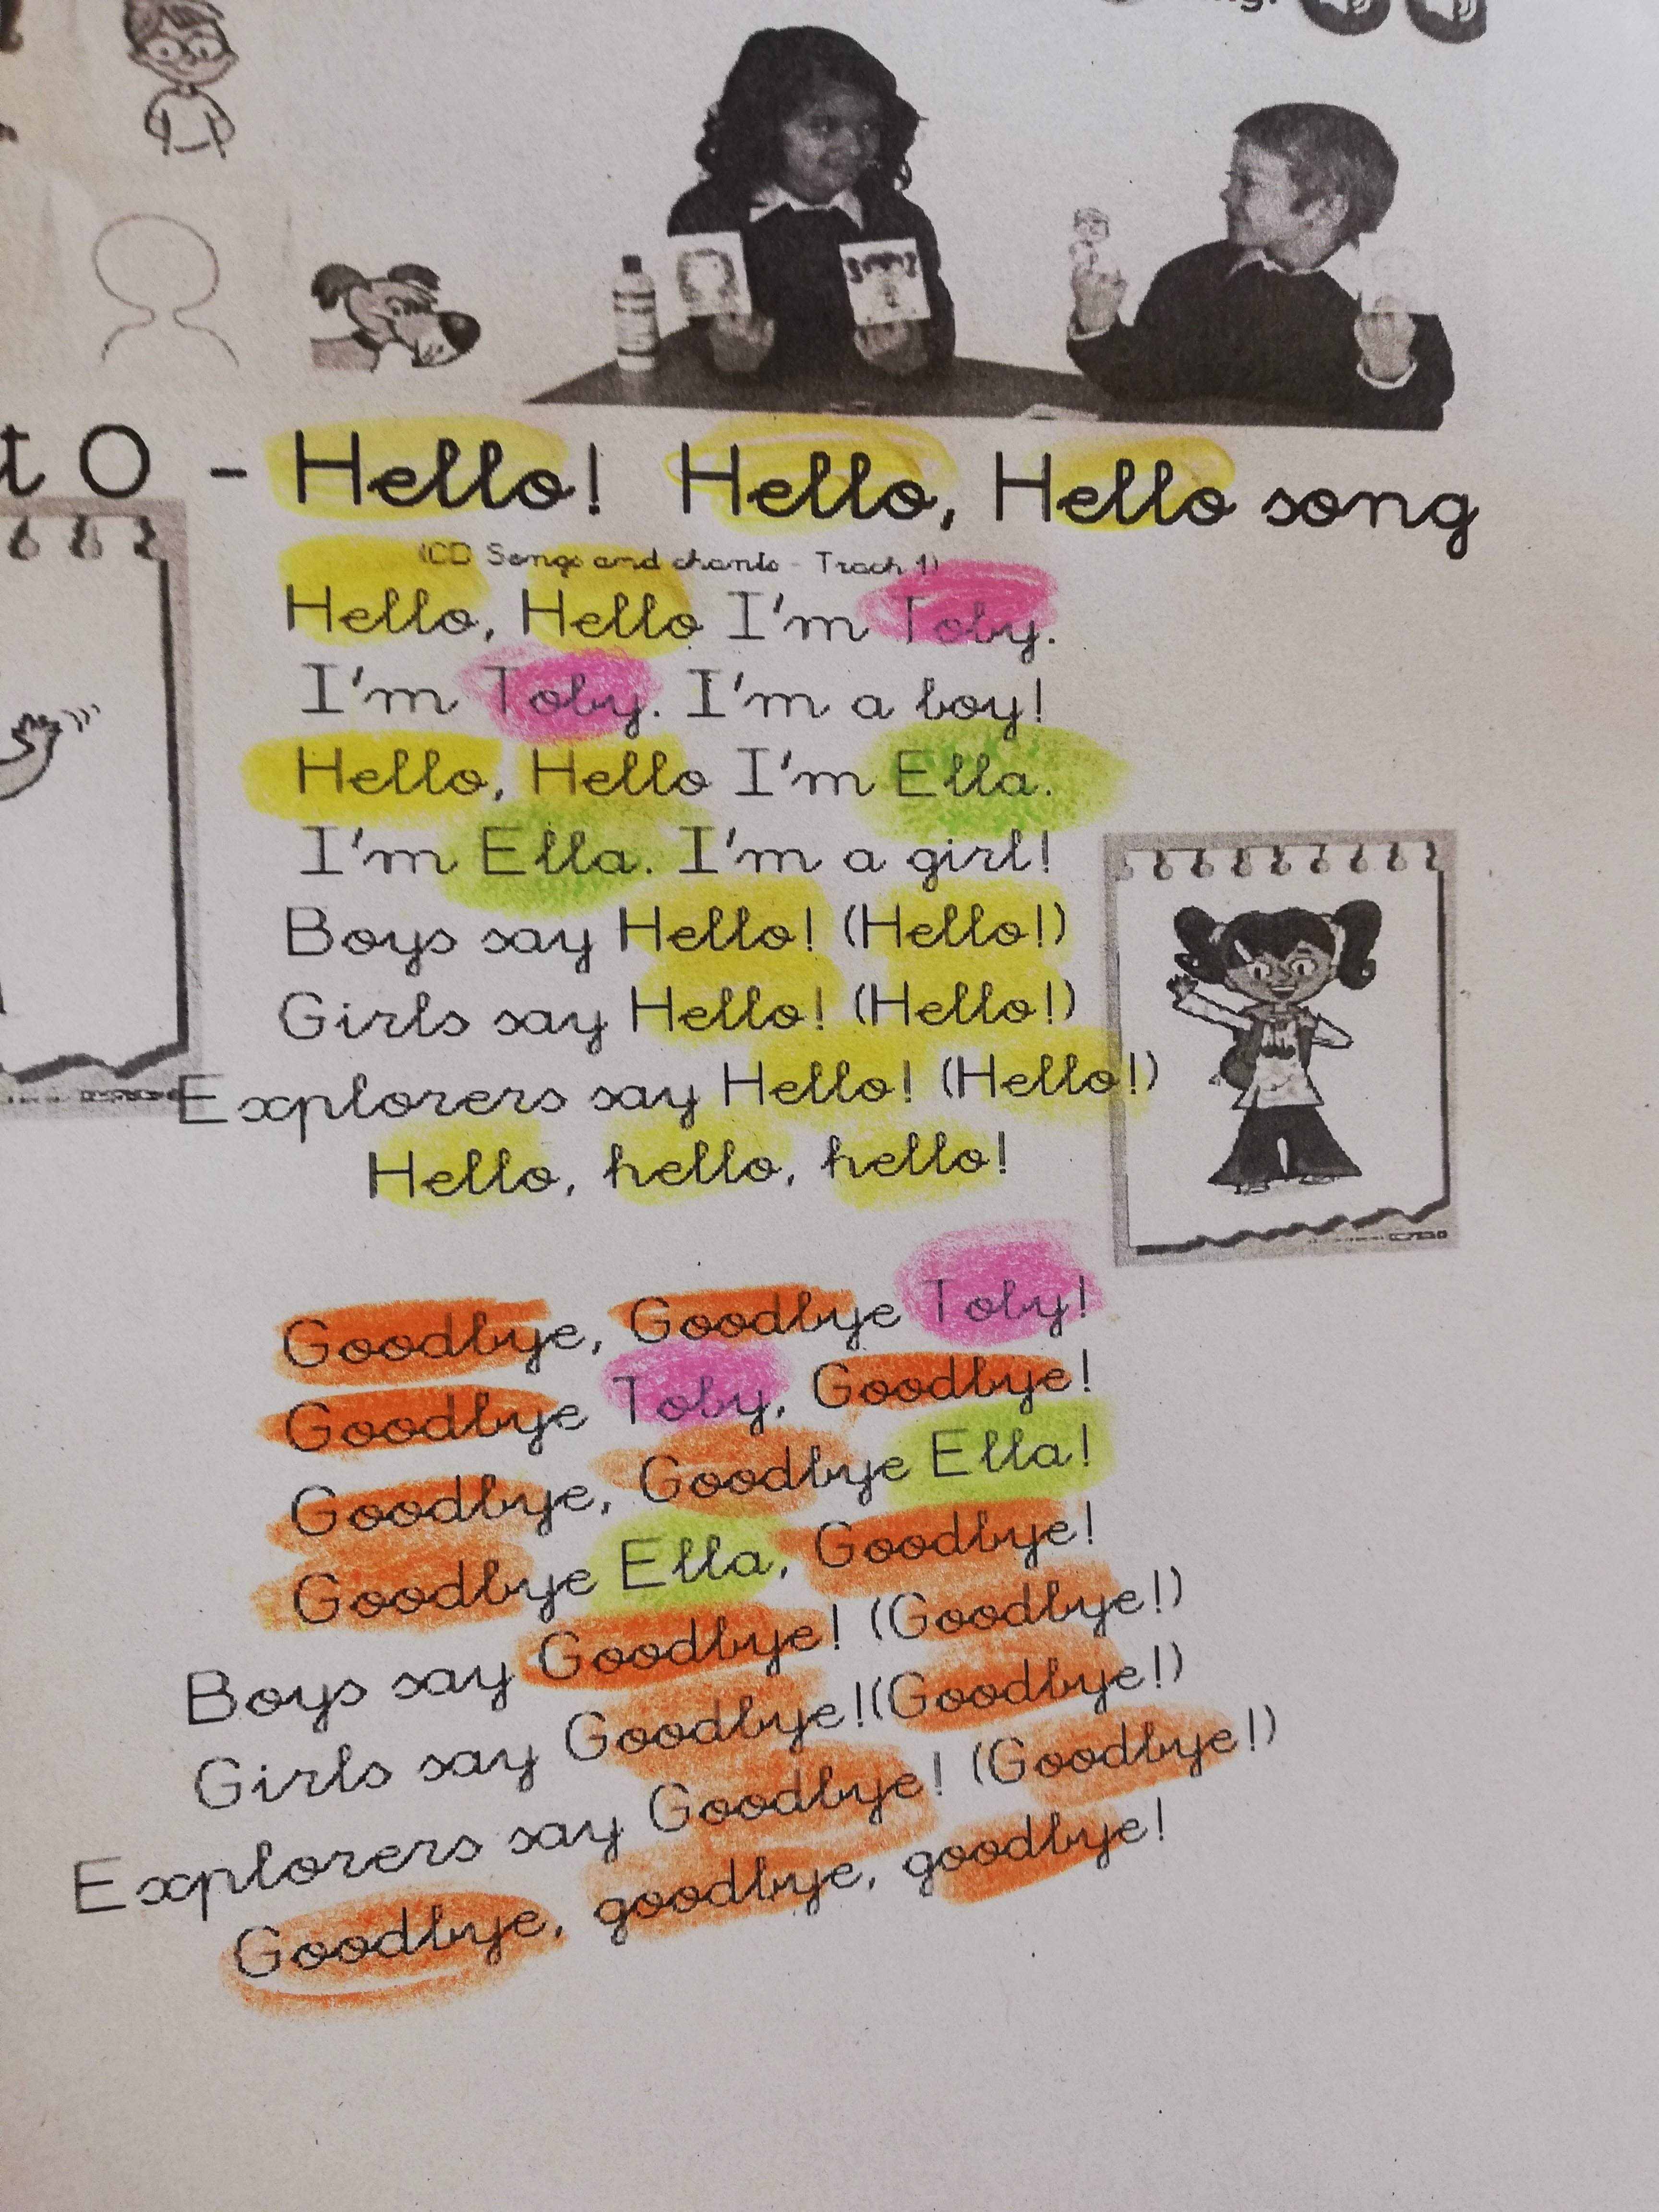 t 0 - Hello! Hello, Hello song
(CD Songs and chants - Track 1)
Hello, Hello I'm Toby.
I'm Toby. I'm a boy!
Hello, Hello I'm Ella.
I'm Ella. I'm a girl!
Boys say Hello! (Hello!)
Girls say Hello! (Hello!)
Explorers say Hello! (Hello!)
Hello, hello, hello!
Goodbye, Goodbye Toby!
Goodbye Toby, Goodbye!
Goodbye, Goodbye Ella!
Goodbye Ella, Goodbye!
Boys say Goodbye! (Goodbye!)
Girls say Goodbye!(Goodbye!)
Explorers say Goodbye! (Goodbye!)
Goodbye, goodbye, goodbye!